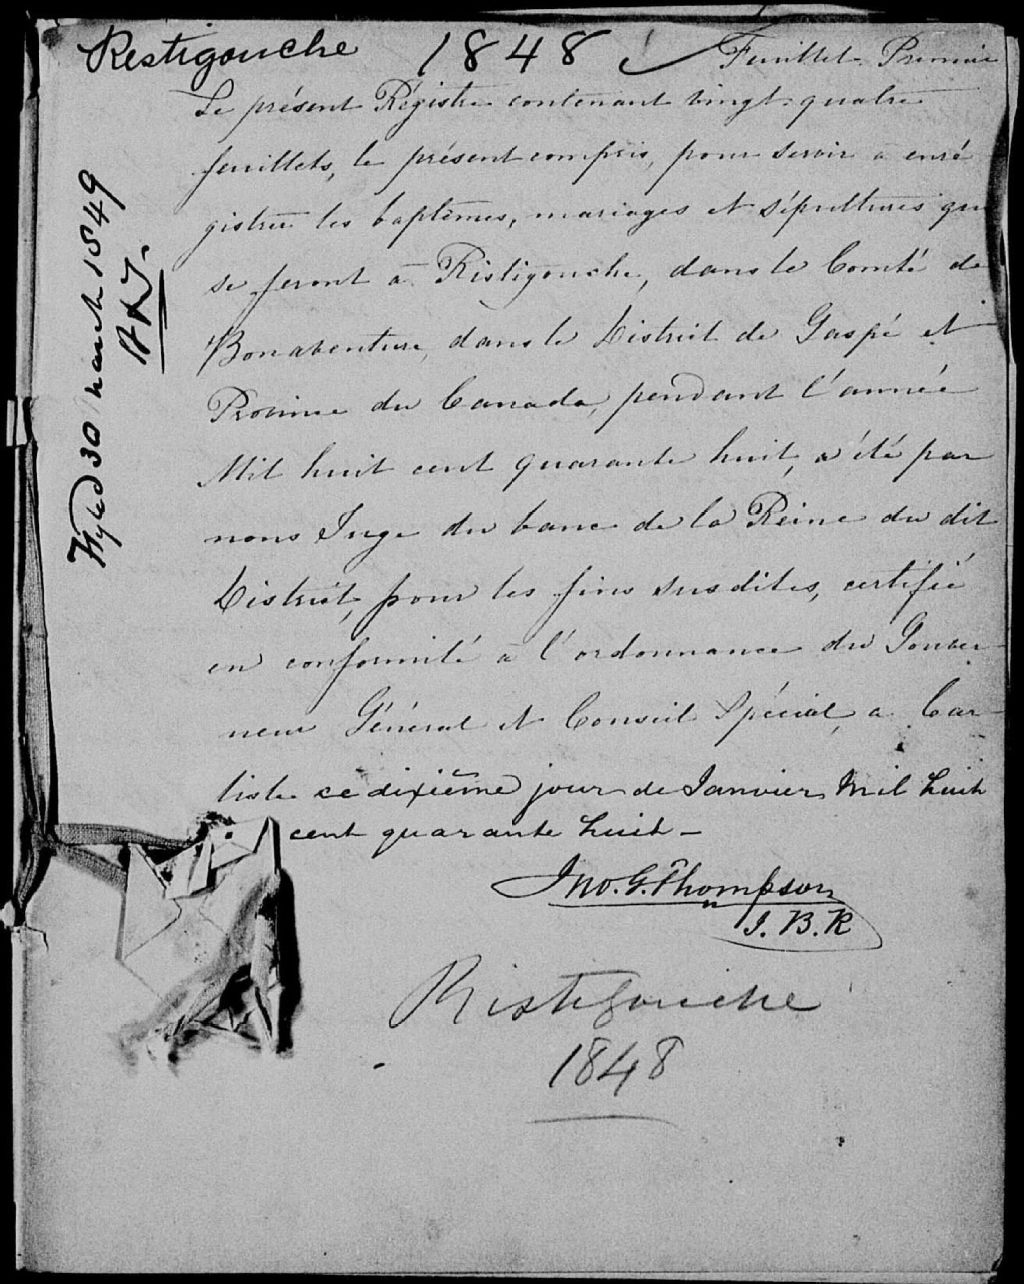 Restigouche 1848 Feuillet Premier
Le présent Régistre contenant vingt-quatre
feuillets, le présent compris, pour servir à enré
gistrer les baptêmes, mariages et sépultures qui
se feront à Ristigouche, dans le Comté de
Bonaventure, dans le District de Gaspé et
Province du Canada, pendant l'année
Mil huit cent quarante huit, a été par
nous Juge du banc de la Reine du dit
District, pour les fins susdites, certifié
en conformité à l'ordonnance du Gouver-
neur Général et Conseil Spécial, a Car-
lisle ce dixième jour de Janvier Mil huit
cent quarante huit -
Jno. G. Thompson
J. B. R
Ristigouche
1848
Fyled 30 March 1849